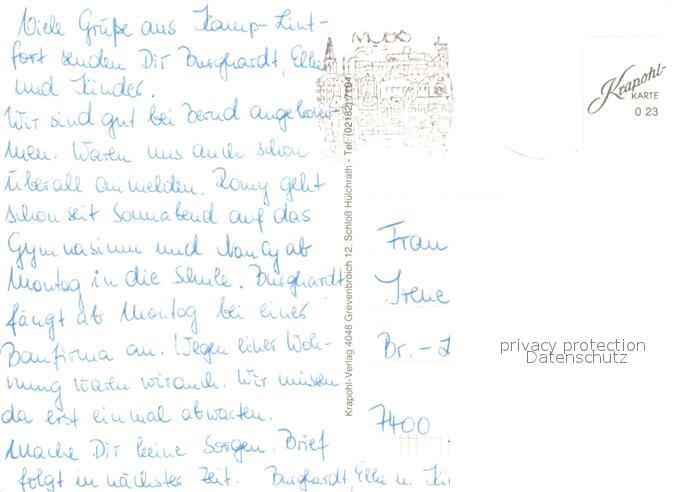 Viele Grüße aus Kamp-Lint-
fort senden Dir Burghardt, Elke
und Kinder.
Wir sind gut bei Bernd angekom-
men. Waren uns auch schon
überall anmelden. Romy geht
schon seit Sonnabend auf das
Gymnasium und Nancy ab
Montag in die Schule. Burghardt
fängt ab Montag bei einer
Baufirma an. Wegen einer Woh-
nung waren wir auch. Wir müssen
da erst einmal abwarten.
Mache Dir keine Sorgen. Brief
folgt in nächster Zeit. Burghardt, Elke u. Ki
Krapohl-Verlag 4048 Grevenbroich 12, Schloß Hülchrath - Tel. (02182) 7194
Krapohl-
KARTE
0 23
Frau
Irene
Br.-L
7400
privacy protection
Datenschutz